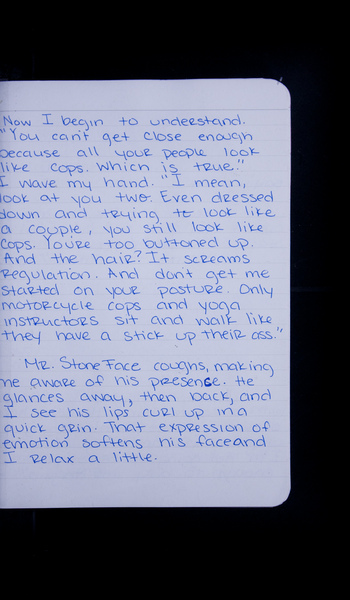 Now I begin to understand.
"You can't get close enough
because all your people look
like cops. Which is true."
I wave my hand. "I mean,
look at you two. Even dressed
down and trying to look like
a couple, you still look like
cops. You're too buttoned up.
And the hair? It screams
regulation. And don't get me
started on your posture. Only
motorcycle cops and yoga
instructors sit and walk like
they have a stick up their ass."
Mr. Stone Face coughs, making
me aware of his presence. He
glances away, then back, and
I see his lips curl up in a
quick grin. That expression of
emotion softens his face and
I relax a little.